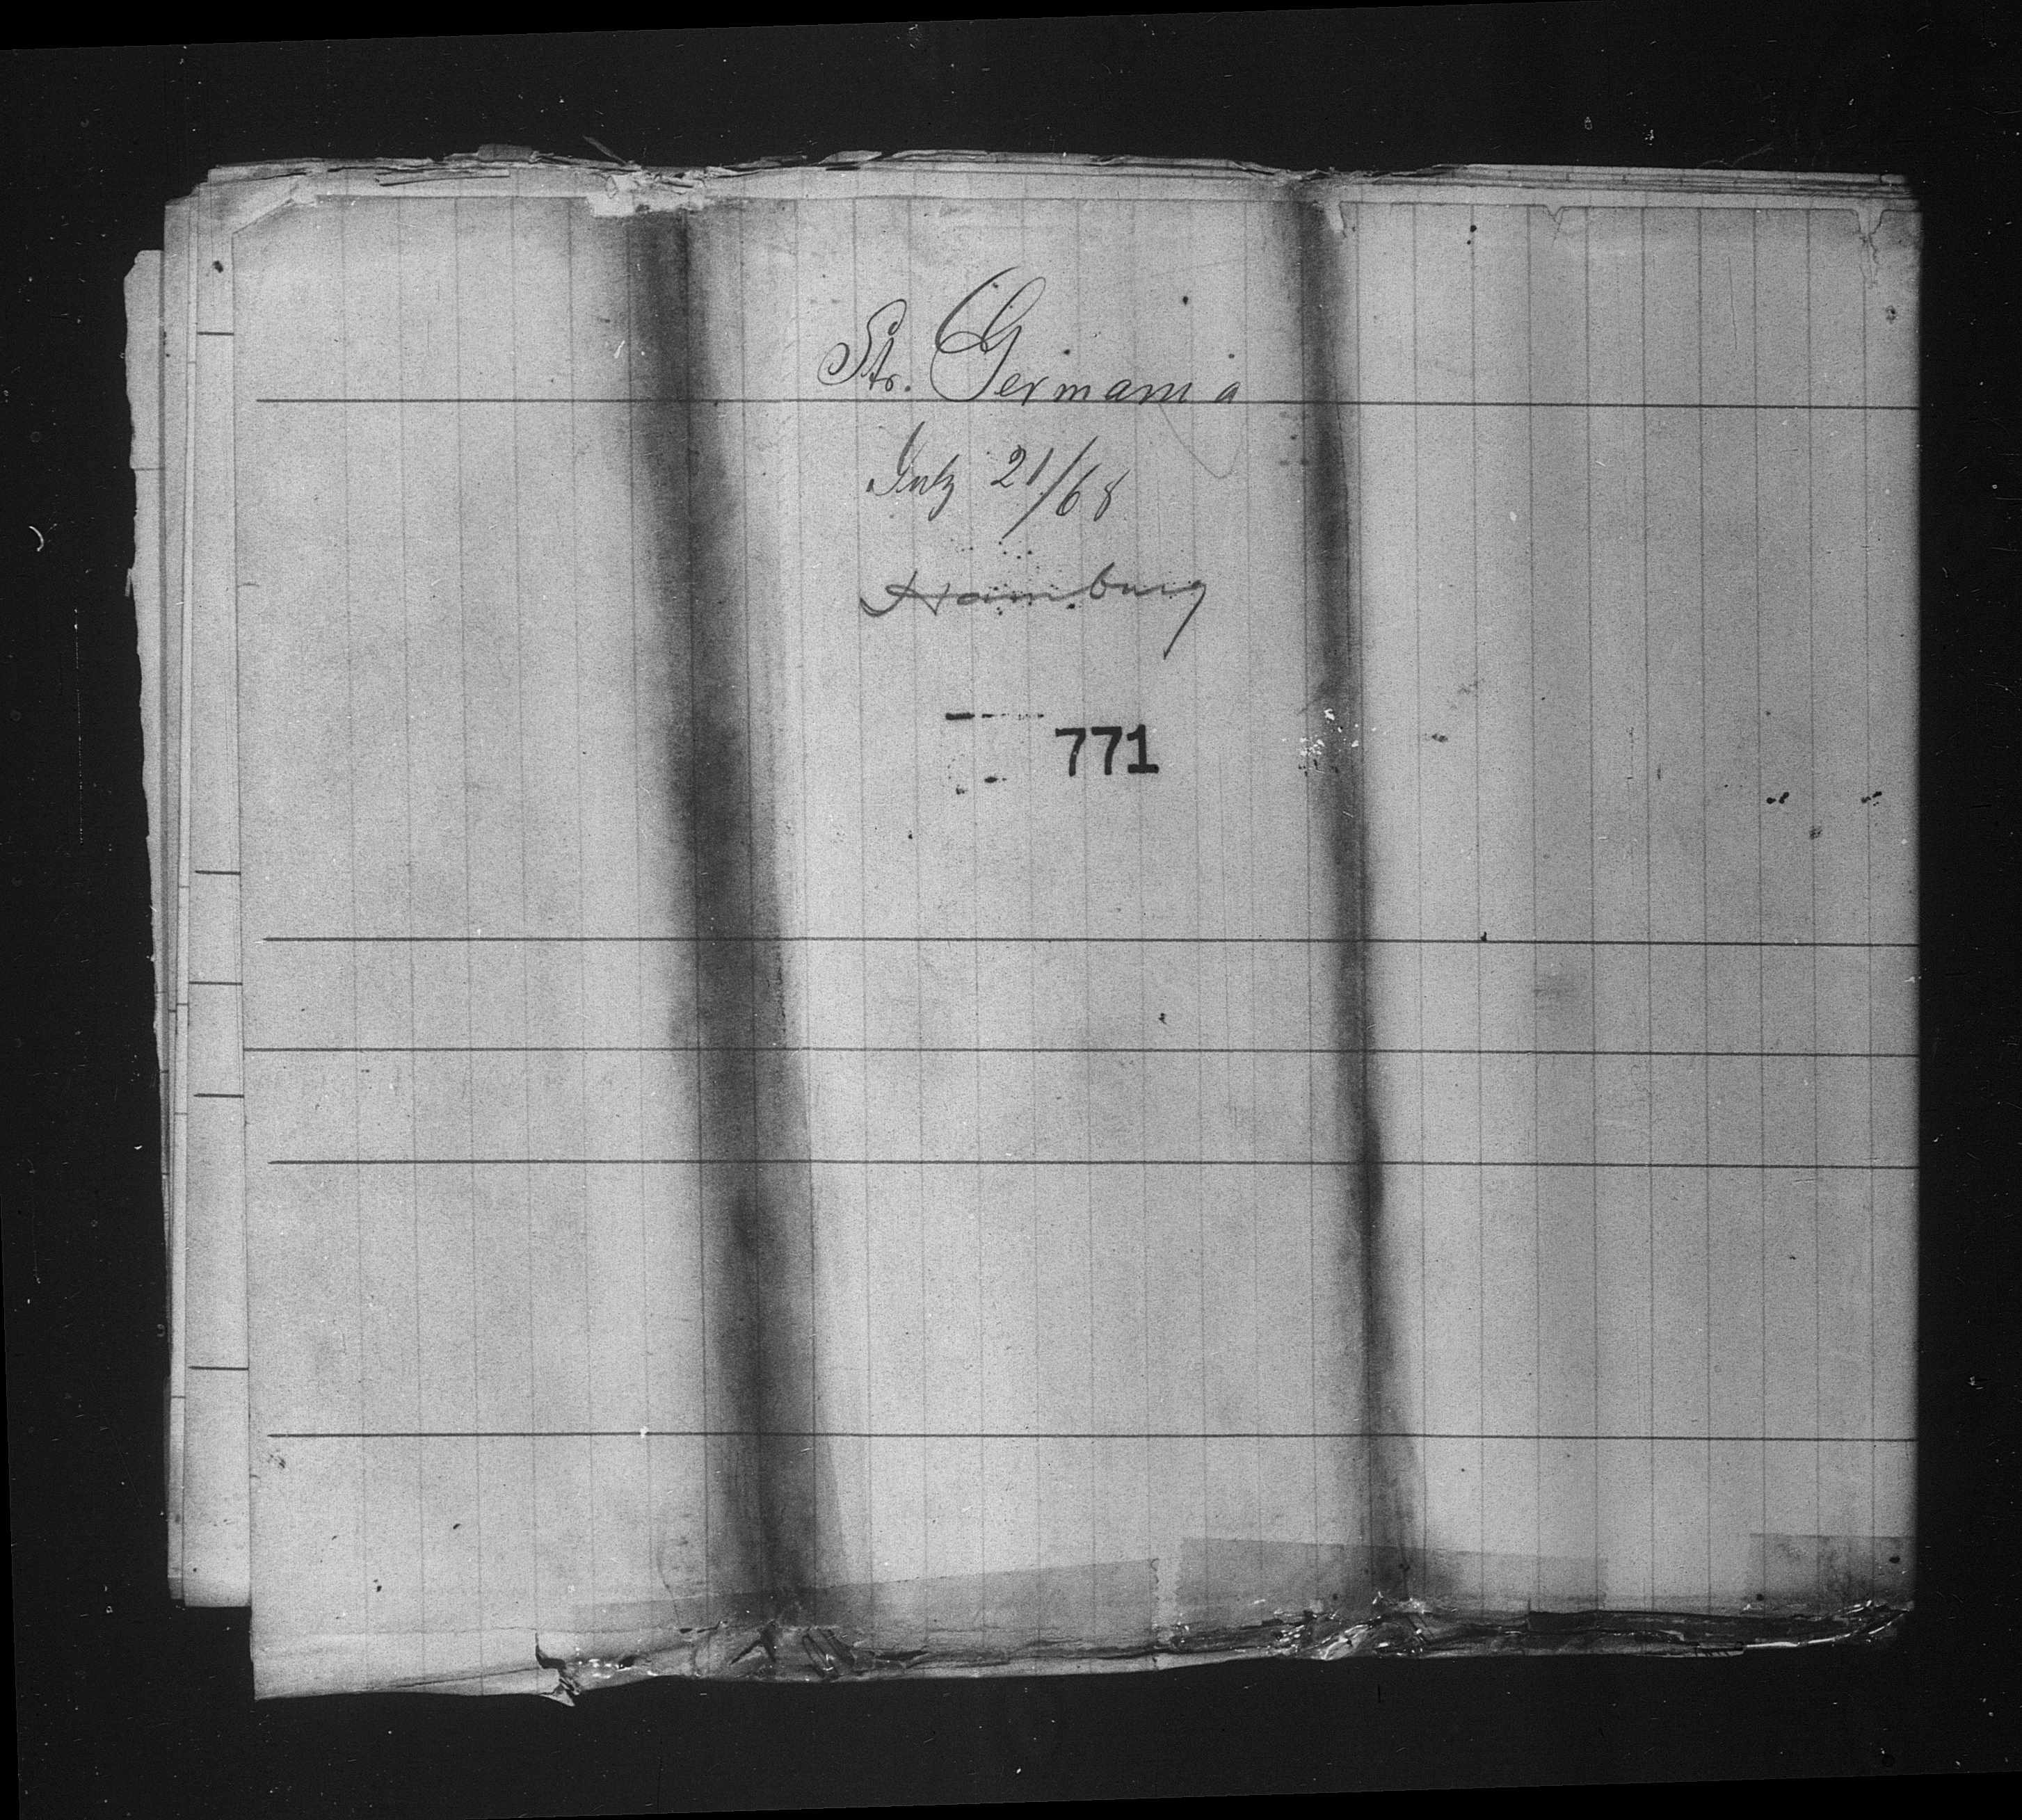 Str. Germania
July 21/68
Hamburg
771